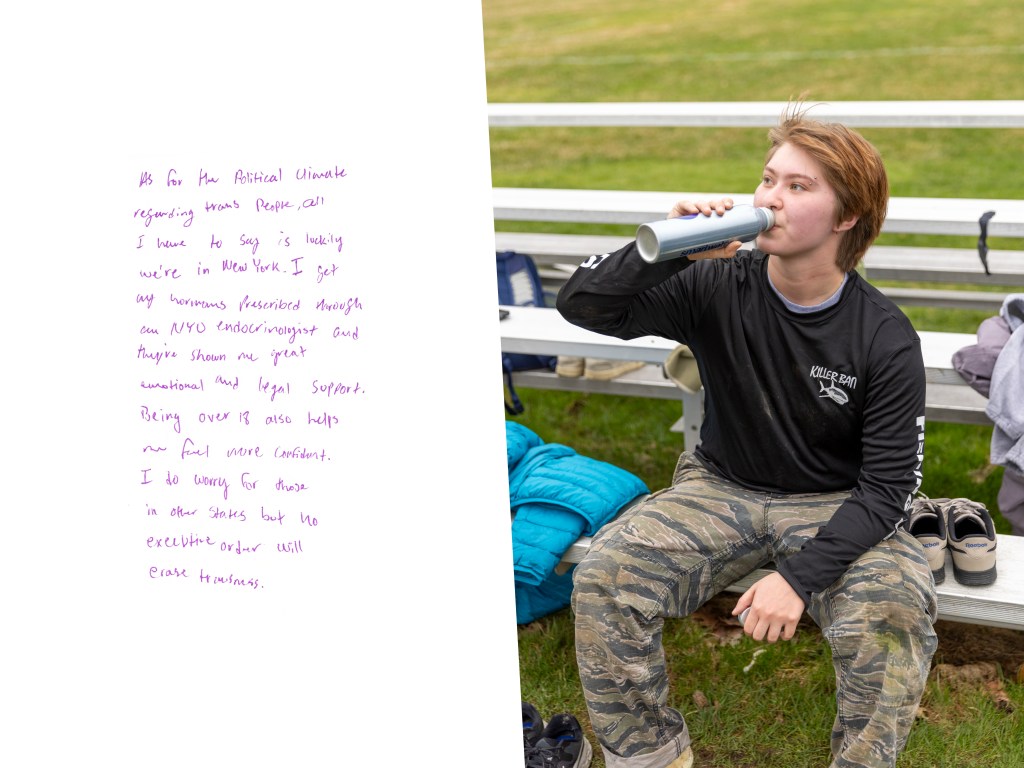 As for the Political Climate
regarding trans People, all
I have to say is luckily
we're in New York. I get
my hormans Prescribed through
an NYU endocrinologist and
they've shown me great
emotional and legal support.
Being over 18 also helps
me feel more confident.
I do worry for those
in other States but no
executive order will
erase transness.
KILLER BAN